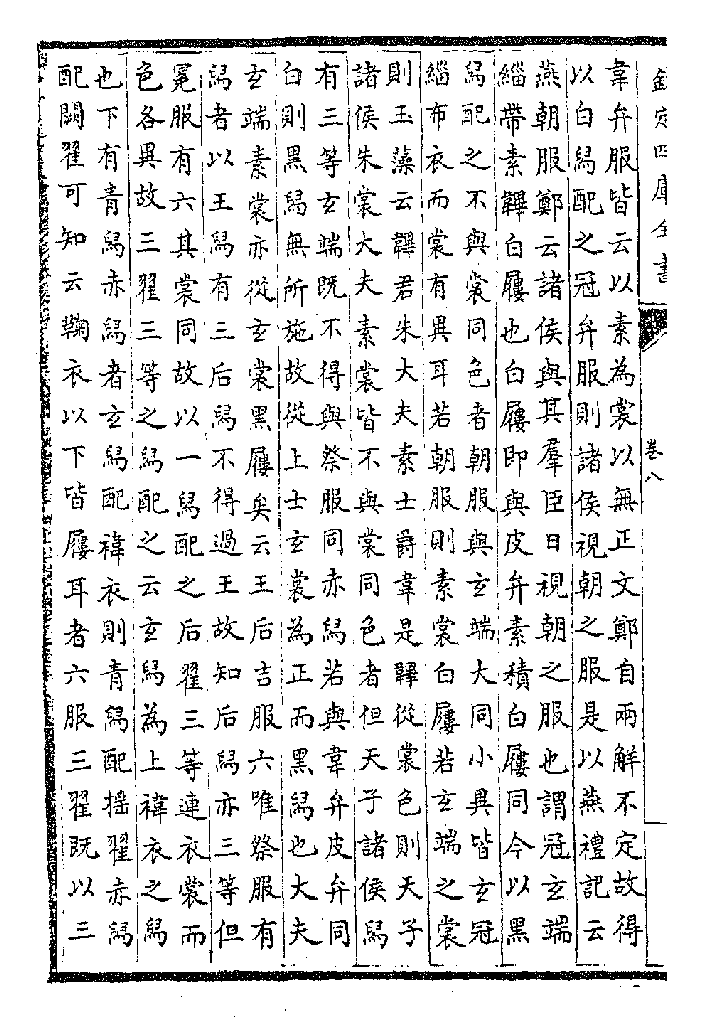 欽定四庫全書
卷八
韋弁服皆云以素為裳以無正文鄭自兩解不定故得
以白舄配之冠弁服則諸侯視朝之服是以燕禮記云
燕朝服鄭云諸侯與其羣臣日視朝之服也謂冠玄端
緇帶素韠白屨也白屨即與皮弁素積白屨同今以黑
舄配之不與裳同色者朝服與玄端大同小異皆玄冠
緇布衣而裳有異耳若朝服則素裳白屨若玄端之裳
則玉藻云韠君朱大夫素士爵韋是韠從裳色則天子
諸侯朱裳大夫素裳皆不與裳同色者但天子諸侯舄
有三等玄端既不得與祭服同赤舄若與韋弁皮弁同
白則黑舄無所施故從上士玄裳為正而黑舄也大夫
玄端素裳亦從玄裳黑屨矣云王后吉服六唯祭服有
舄者以王舄有三后舄不得過王故知后舄亦三等但
冕服有六其裳同故以一舄配之后翟三等連衣裳而
色各異故三翟三等之舄配之云玄舄為上褘衣之舄
也下有青舄赤舄者玄舄配褘衣則青舄配揺翟赤舄
配闕翟可知云鞠衣以下皆屨耳者六服三翟既以三